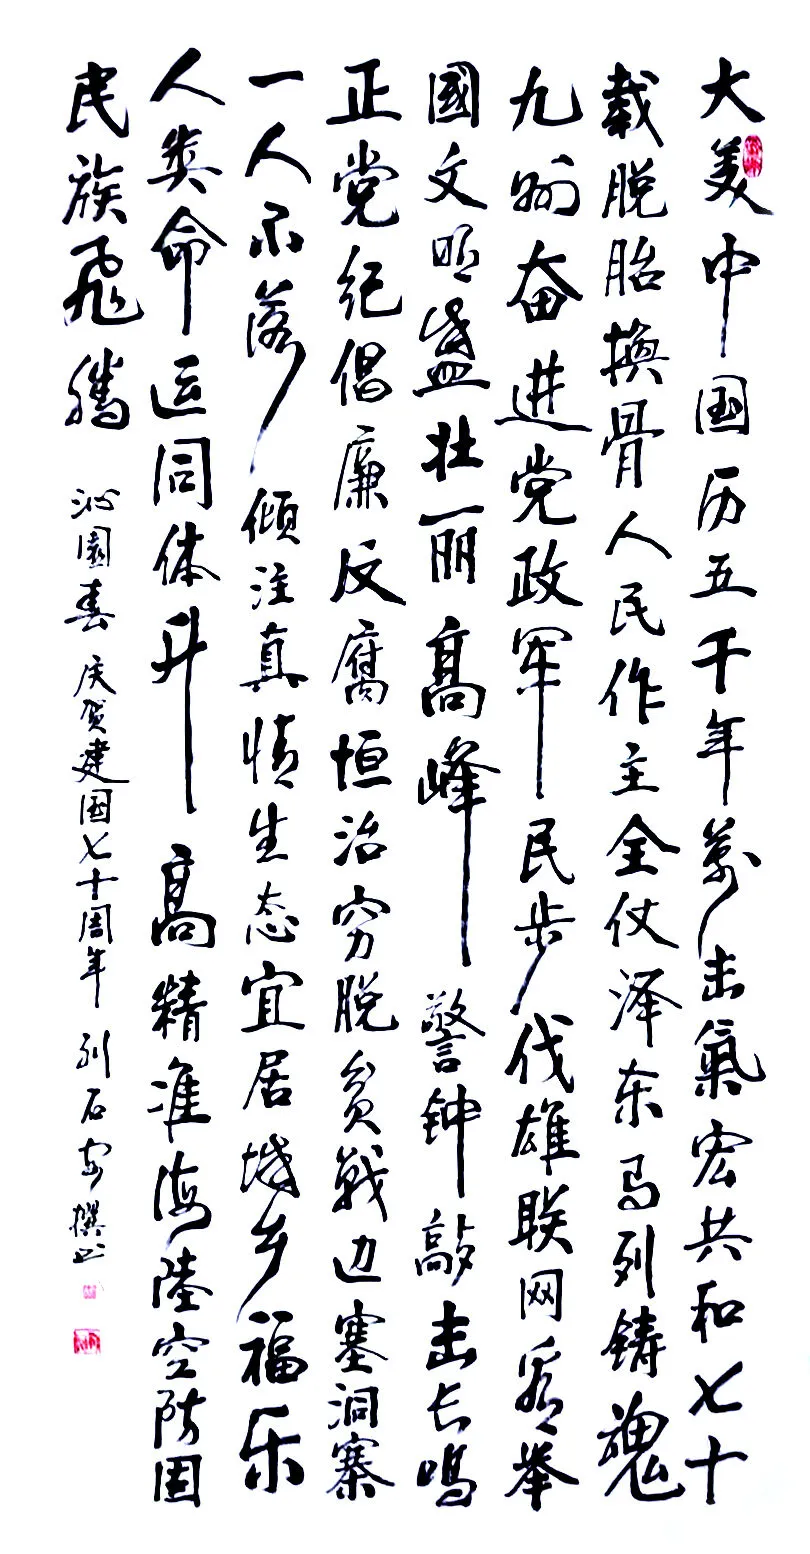 大美中国历五千年萬击氣宏共和七十
载脱胎换骨人民作主全仗泽东马列铸魂
九州奋进党政军民步伐雄联网举
國文明盛壮丽高峰警钟敲击长鸣
正党纪倡廉反腐恒治穷脱贫战边塞洞寨
一人不落倾注真情生态宜居城乡福乐
人类命运同体升高精准海陸空防固
民族飛腾
沁園春 庆贺建国七十周年 列石 撰书